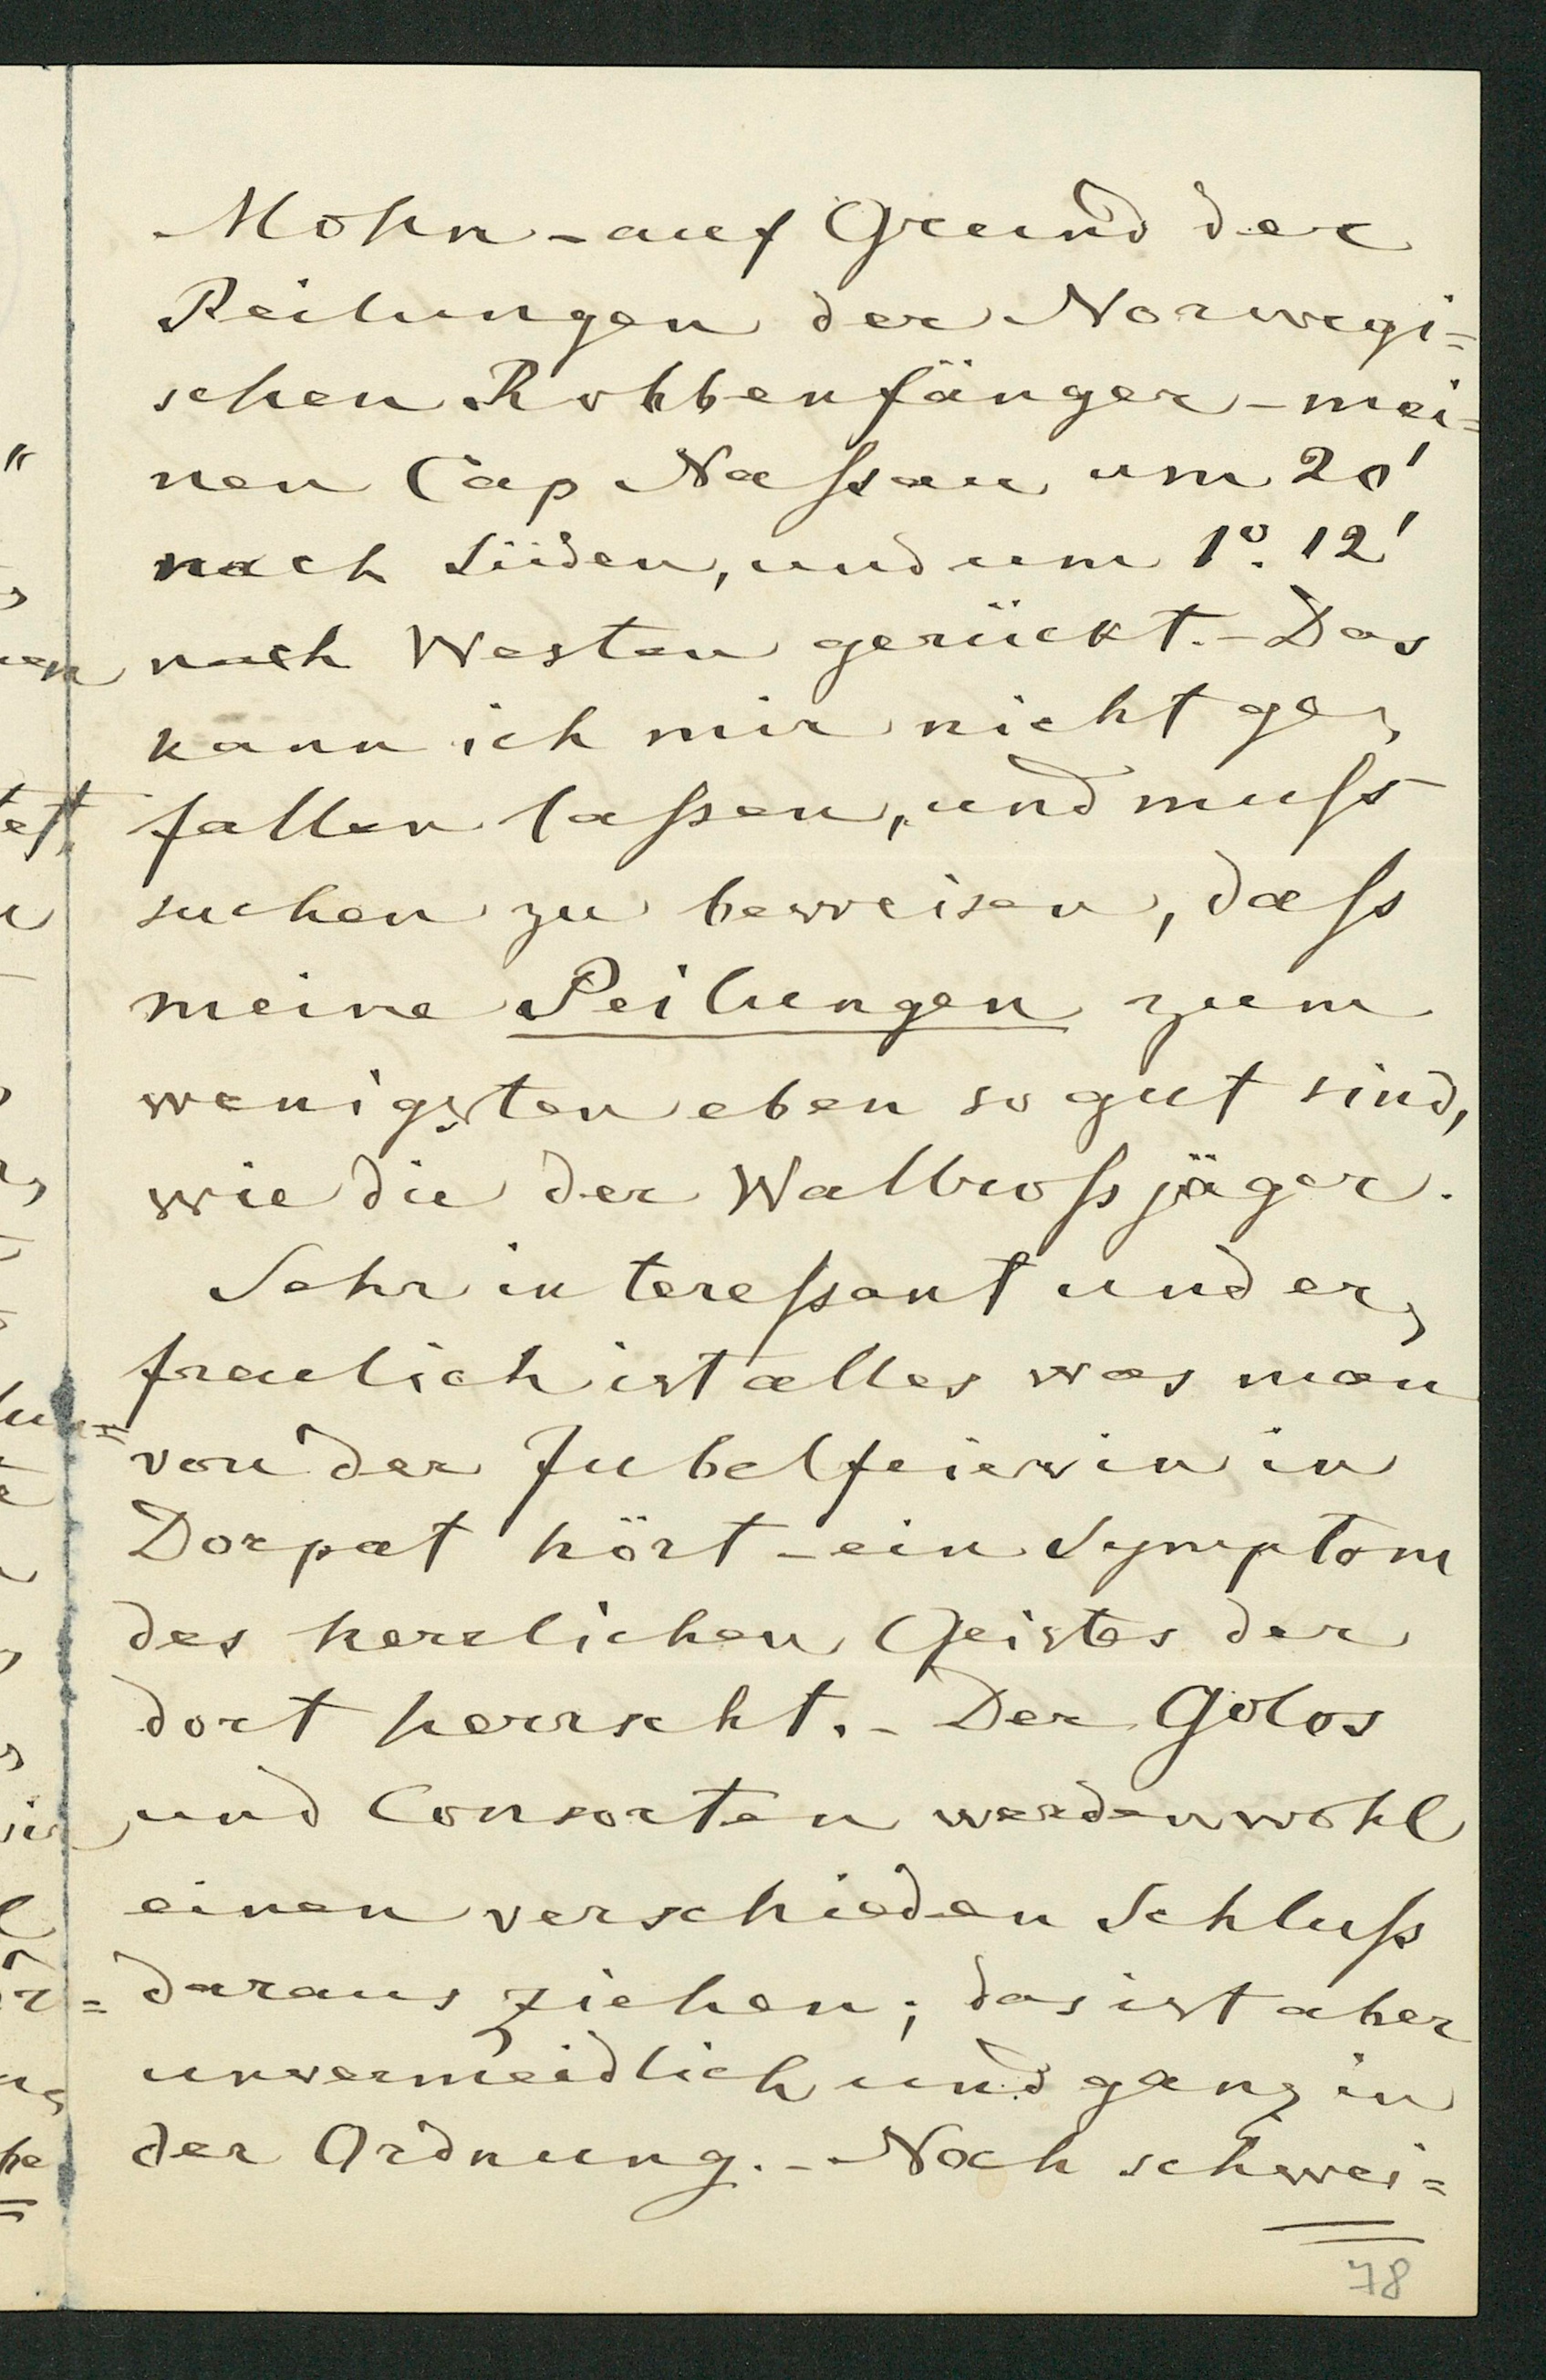 Mohn – auf Grund der
Peilungen der Norwegi=
schen Robbenfänger – mei=
nen Cap Nassau um 20'
nach Süden, und um 1°. 12'
nach Westen gerückt. – Das
kann ich mir nicht ge,
fallen lassen, und muss
suchen zu beweisen, dass
meine Peilungen zum
wenigsten eben so gut sind,
wie die der Wallrossjäger.
Sehr interessant und er,
freulich ist alles was man
von der Jubelfeier in
Dorpat hört – ein Symptom
des herrlichen Geistes der
dort herrscht. – Der Golos
und Consorten werden wohl
einen verschieden Schluss
daraus ziehen; das ist aber
unvermeidlich und ganz in
der Ordnung. – Noch schwei=
78